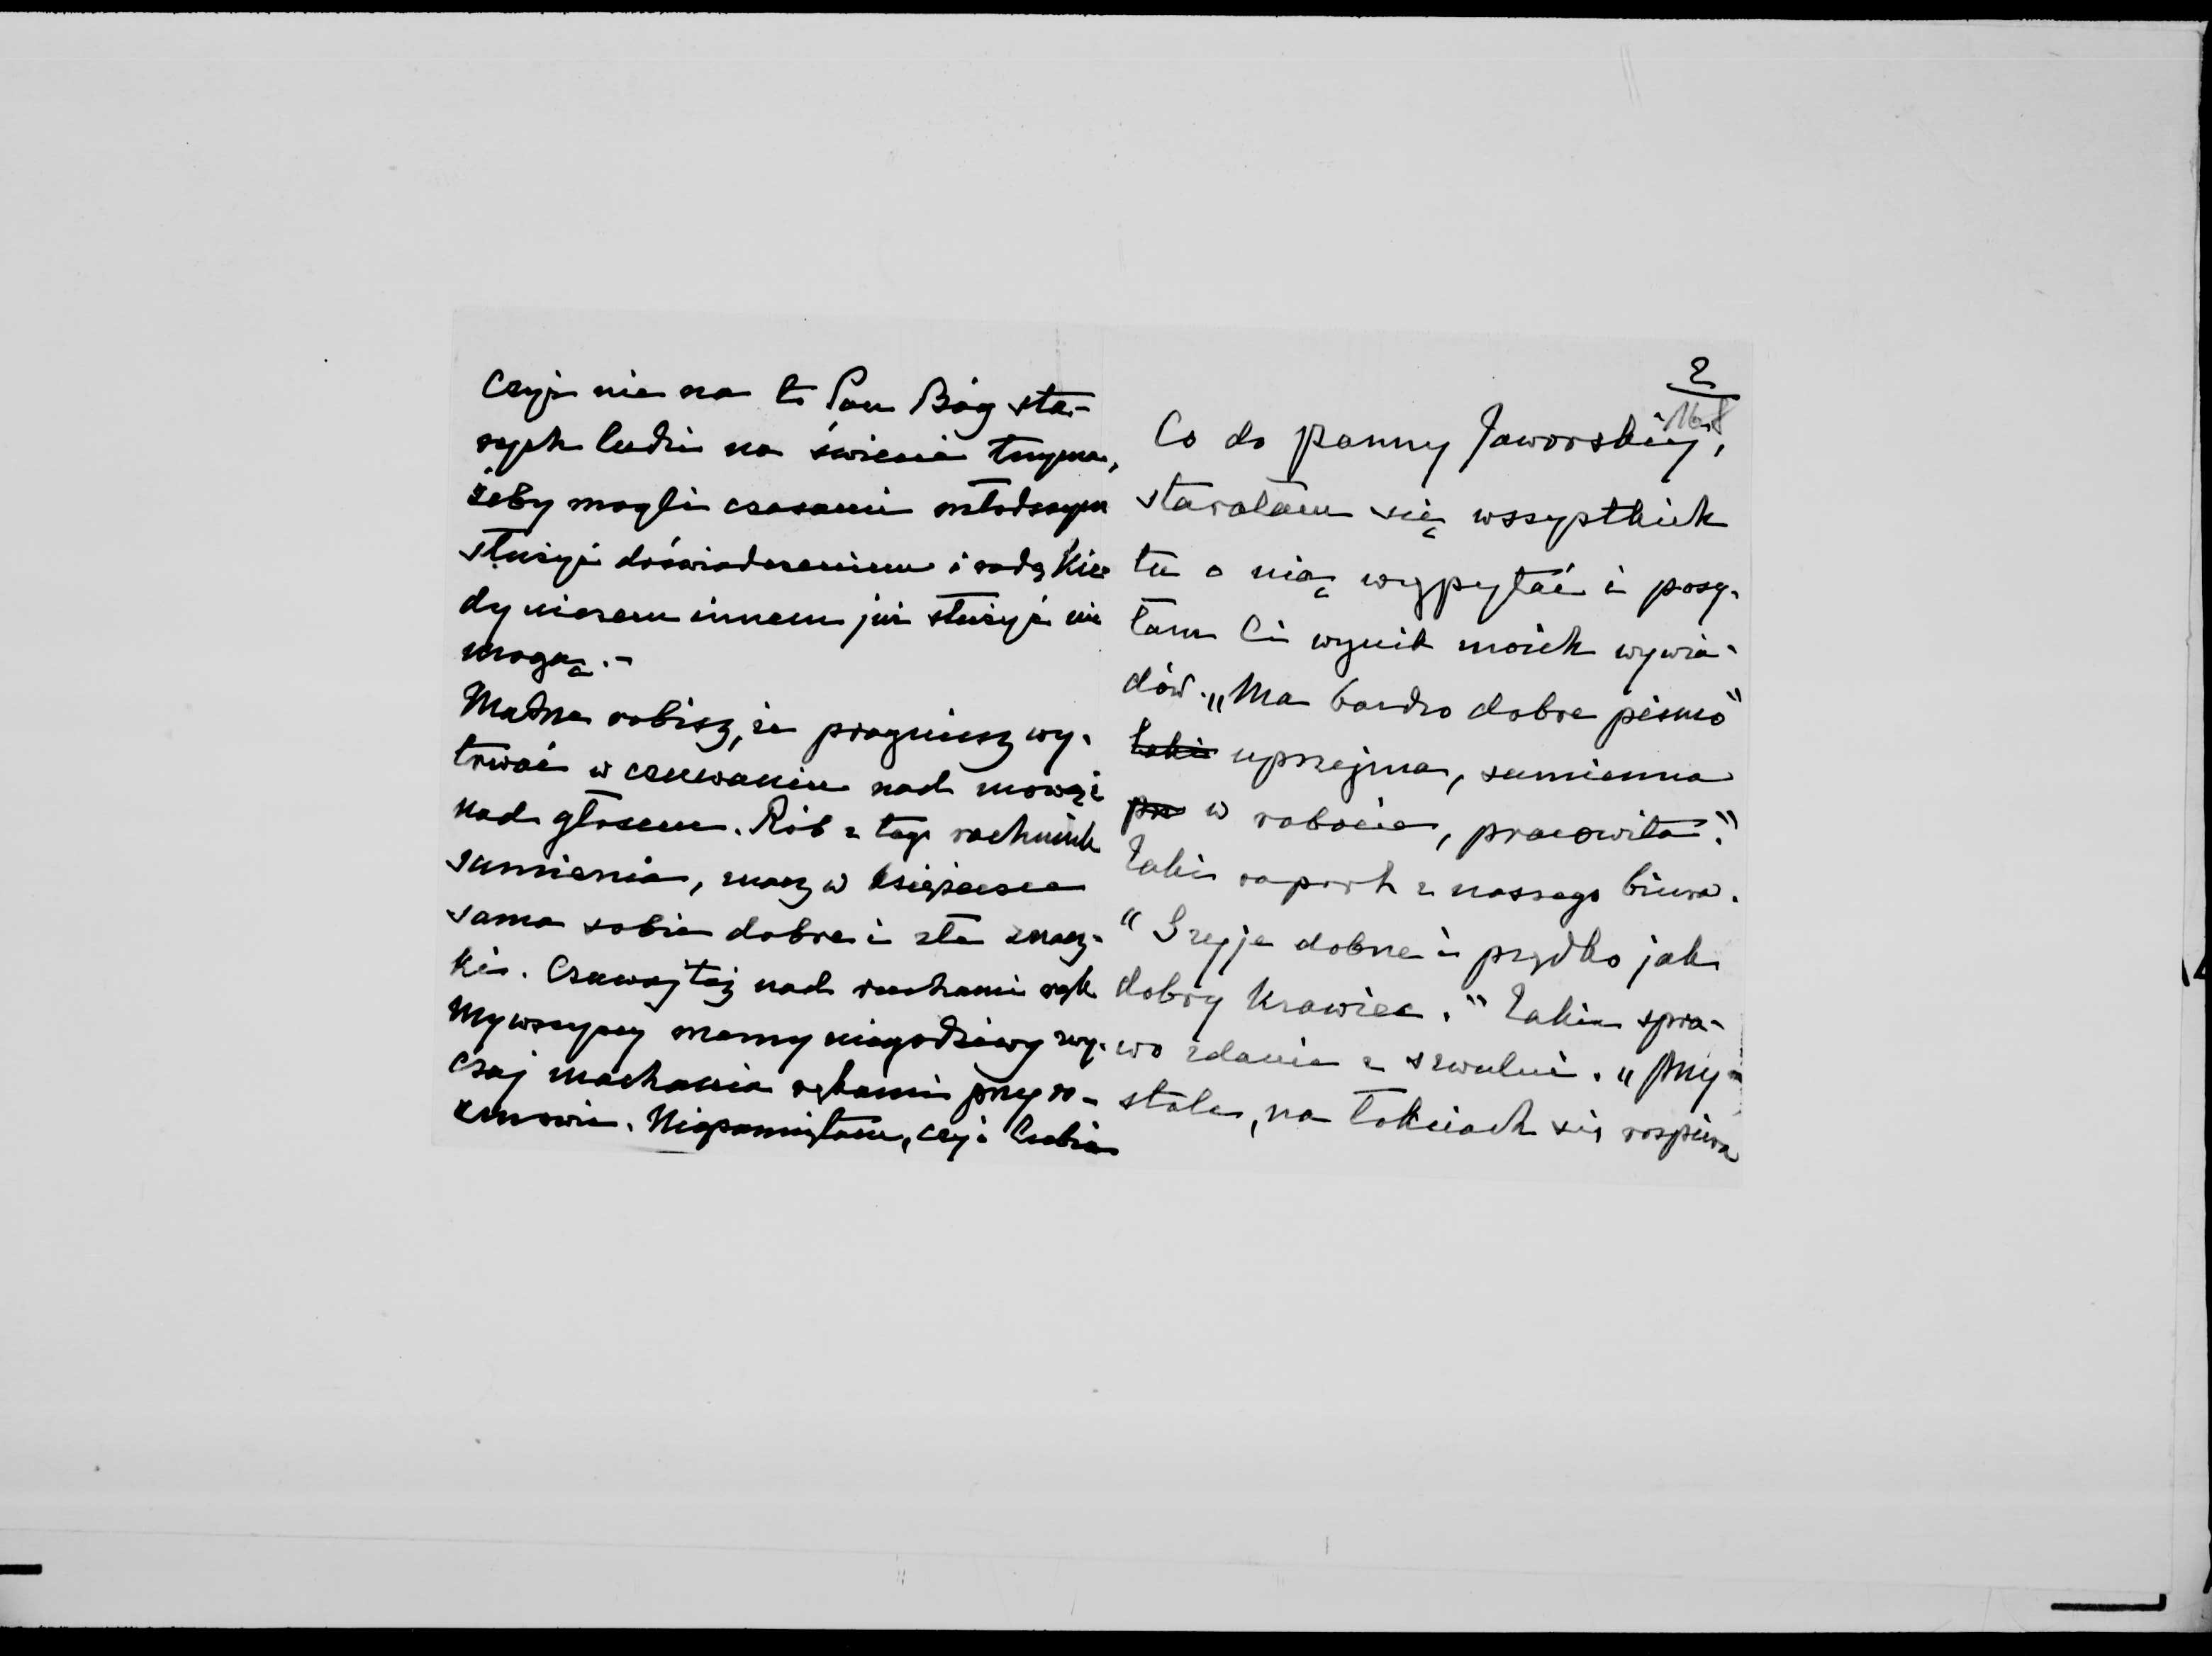 Czyż nie na to Pan Bóg sta-
rych ludzi na świecie trzyma,
żeby mogli czasami młodszym
służyć doświadczeniem i radą kie
dy niczem innem już służyć nie
mogą.-
Mądrze robisz, że pragniesz wy-
trwać w czuwaniu nad mową i
nad głosem. Rób z tego rachunek
sumienia, znacz w książeczce
sama sobie dobre i złe znacz-
ki. Czuwaj też nad ruchami rąk
My wszyscy mamy niegodziwy zwy-
czaj machania rękami przy ro-
zmowie. Niepamiętam, czy i Lubia
2
168
Co do panny Jaworskiej,
starałam się wszystkich
tu o nią wypytać i posy-
łam Ci wynik moich wywia-
dów. „Ma bardzo dobre pismo"
takie uprzejma, sumienna
pra w robocie, pracowita."
Taki raport z naszego biura.
"Szyje dobrze i prędko jak
dobry krawiec." Takie spra-
wo zdanie z szwalni. „Przy
stole, na łokciach się rozpiera